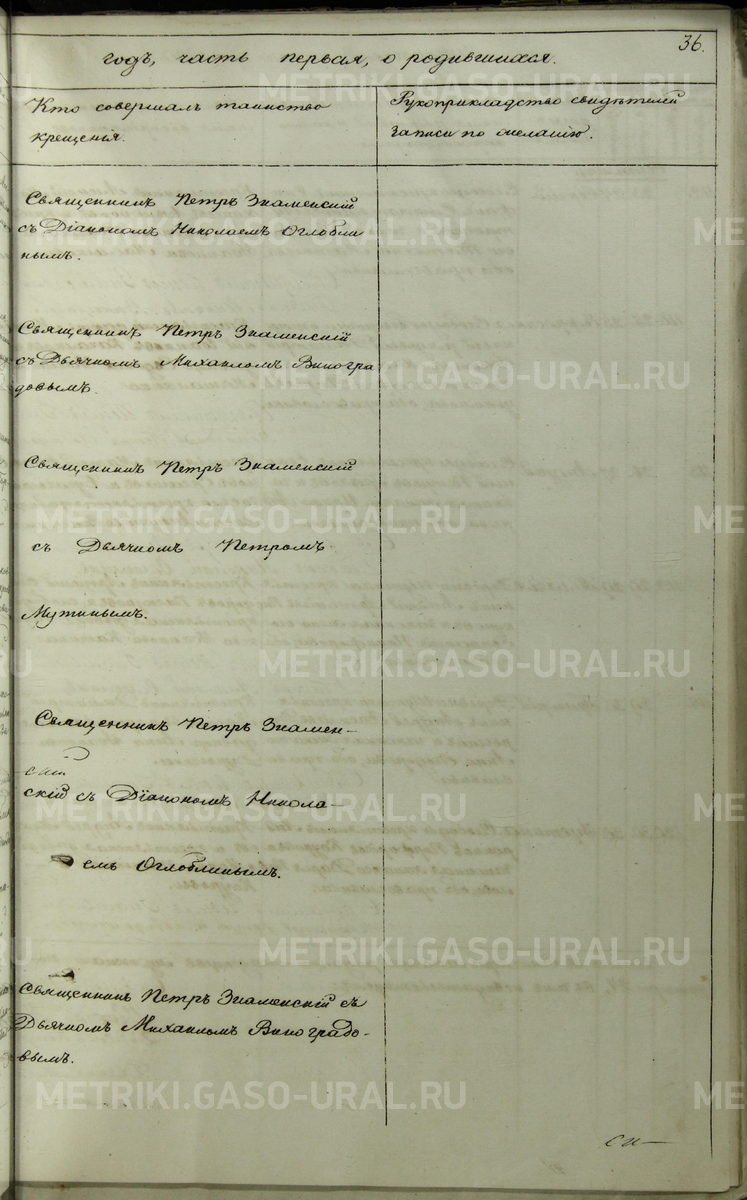 36.
годъ, часть первая, о родившихся.
Кто совершалъ таинство
крещенія.
Рукоприкладство свидѣтелей
записи по желанію.
Священникъ Петръ Знаменскій
съ Діакономъ Николаемъ Оглобли
нымъ.
Священникъ Петръ Знаменскій
съ Дьячкомъ Михаиломъ Виногра
довымъ.
Священникъ Петръ Знаменскій
съ Дьячкомъ Петромъ
Мутинымъ.
Священникъ Петръ Знамен-
скій съ Діакономъ Никола-
емъ Оглоблинымъ.
Священникъ Петръ Знаменскій съ
Дьячкомъ Михаиломъ Виноградо-
вымъ.
METRIKI.GASO-URAL.RU